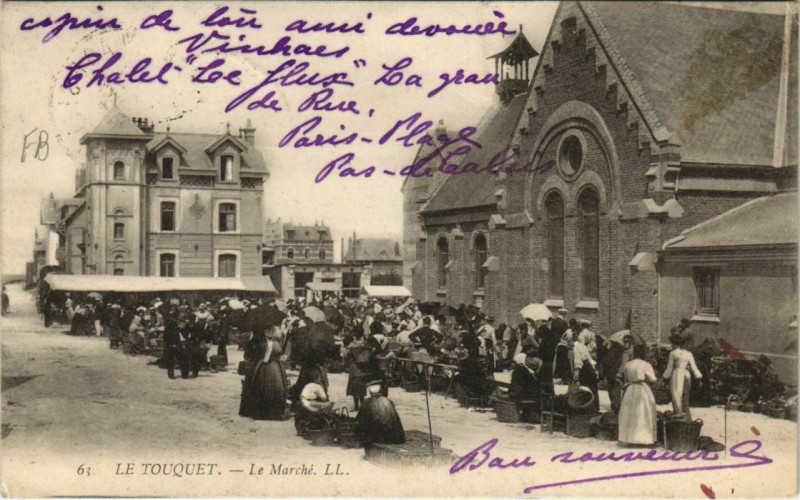 copin de ton ami devouée
Vinhaes
Chalet "Le Flux" La gran
de Rue,
Paris-Plage
Pas-de Calais
FB
63 LE TOUQUET. — Le Marché. LL.
Bon souvenir